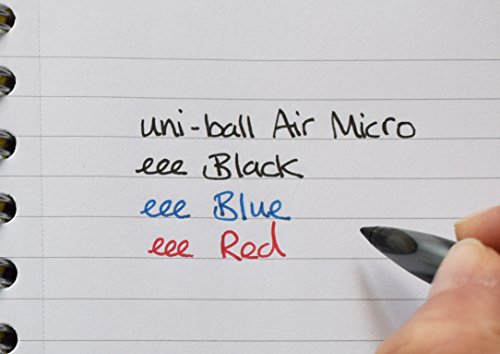 uni-ball Air Micro
eee Black
eee Blue
eee Red